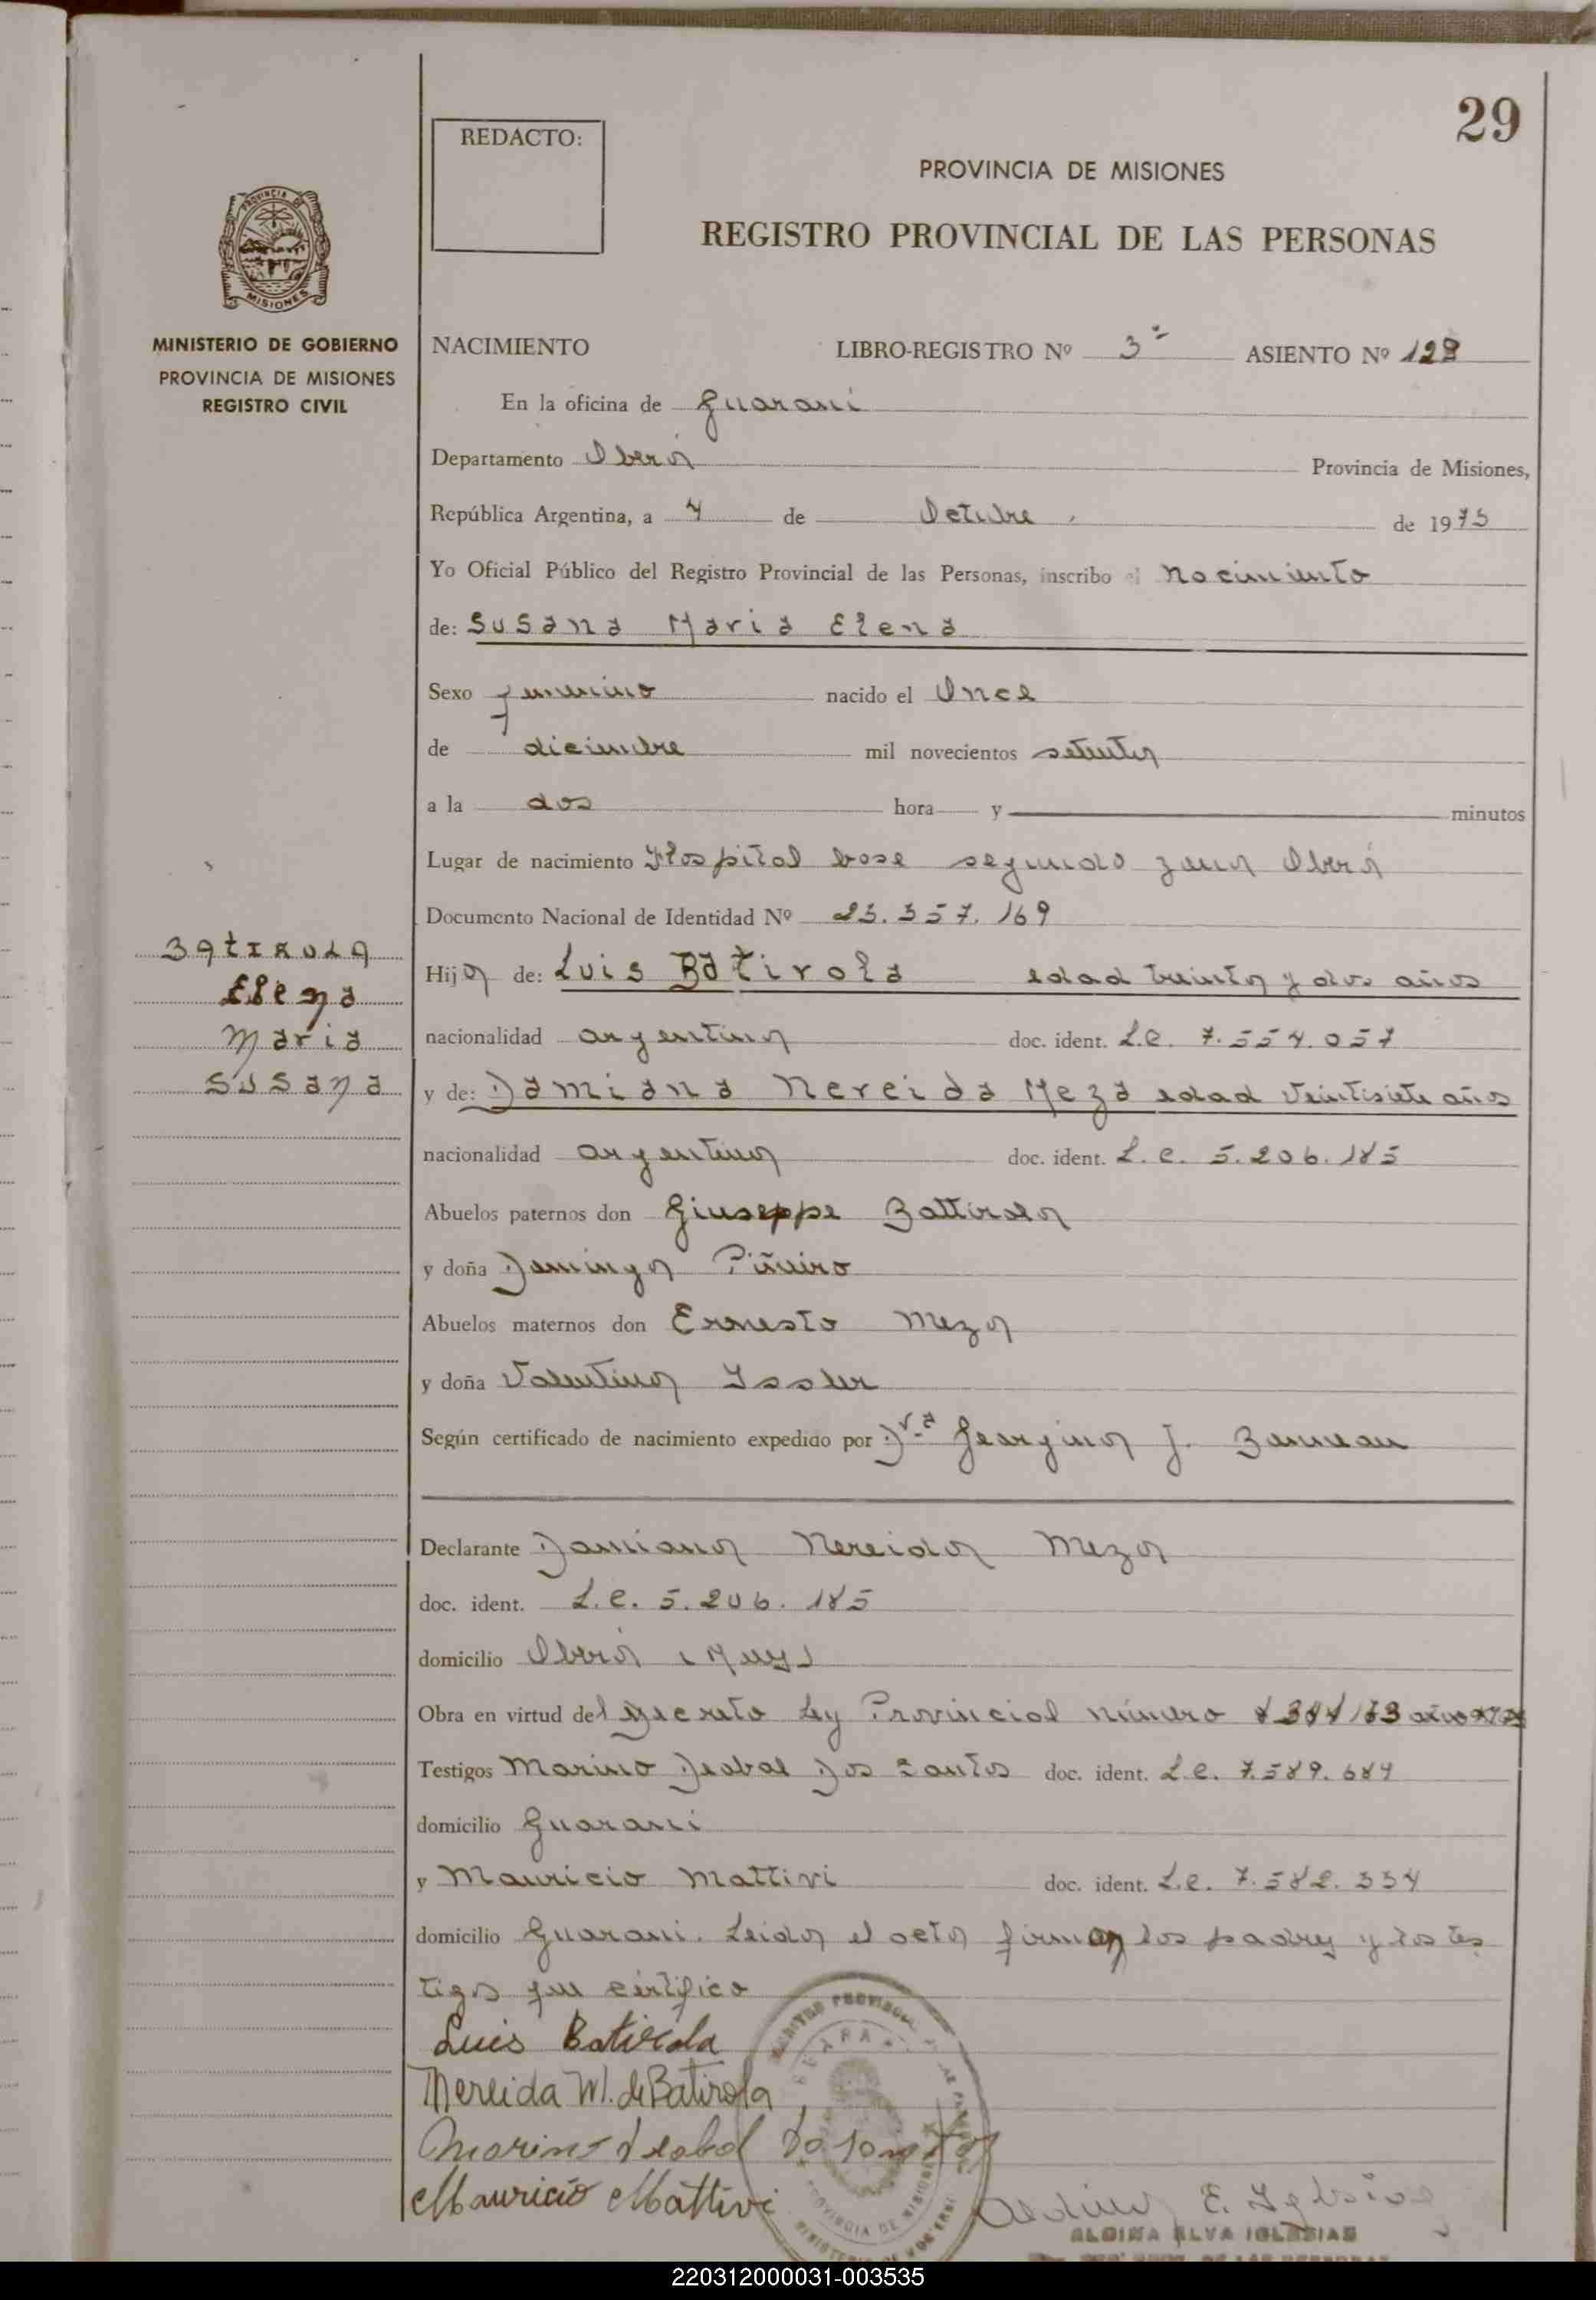 29
REDACTO:
PROVINCIA DE MISIONES
REGISTRO PROVINCIAL DE LAS PERSONAS
PROVINCIA DE
MISIONES
MINISTERIO DE GOBIERNO
PROVINCIA DE MISIONES
REGISTRO CIVIL
NACIMIENTO LIBRO-REGISTRO Nº 3º ASIENTO Nº 128
En la oficina de Guarani
Departamento Oberá Provincia de Misiones,
República Argentina, a 4 de Octubre de 1973
Yo Oficial Público del Registro Provincial de las Personas, inscribo el nacimiento
de: Susana Maria Elena
Sexo femenino nacido el Once
de diciembre mil novecientos setenta
a la dos hora y minutos
Lugar de nacimiento Hospital base segundo zona Oberá
Documento Nacional de Identidad Nº 23.357.169
Hija de: Luis Batirola edad treinta y dos años
nacionalidad argentina doc. ident. L.E. 7.554.057
y de: Damiana Nereida Meza edad Veintisiete años
nacionalidad argentina doc. ident. L.C. 5.206.185
Abuelos paternos don Giuseppe Battirola
y doña Dominga Piñeiro
Abuelos maternos don Ernesto Meza
y doña Valentina Issler
Según certificado de nacimiento expedido por Dra Georgina J.
BATIROLA
Elena
Maria
Susana
Declarante Damiana Nereida Meza
doc. ident. L.C. 5.206.185
domicilio Oberá (Mnes)
Obra en virtud del decreto Ley Provincial número
Testigos Marino Deobal Dos Santos doc. ident. L.E. 7.589.684
domicilio Guarani
y Mauricio Mattivi doc. ident. L.E. 7.582.334
domicilio Guarani. Leida el acta firman los padres y los tes
tigos que certifico
Luis Batirola
Nereida M. de Batirola
Marino Deobal Do Santos
Mauricio Mattivi
E. Iglesias
ALBINA ELVA IGLESIAS
220312000031-003535